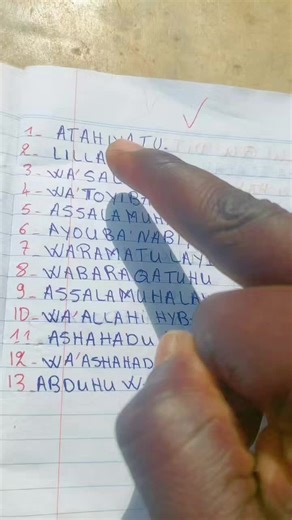 1- ATAHIYATU.
2- LILLA
3- WA'SAL
4- WA'TOYIBA
5- ASSALAMUH
6- AYOUBA'NABIY
7- WARAMATU LAYI
8- WABARAQATUHU
9- ASSALAMUHALA
10- WA'ALLAHI HYB
11- ASHAHADU
12- WA'ASHAHAD
13- ABDUHU W